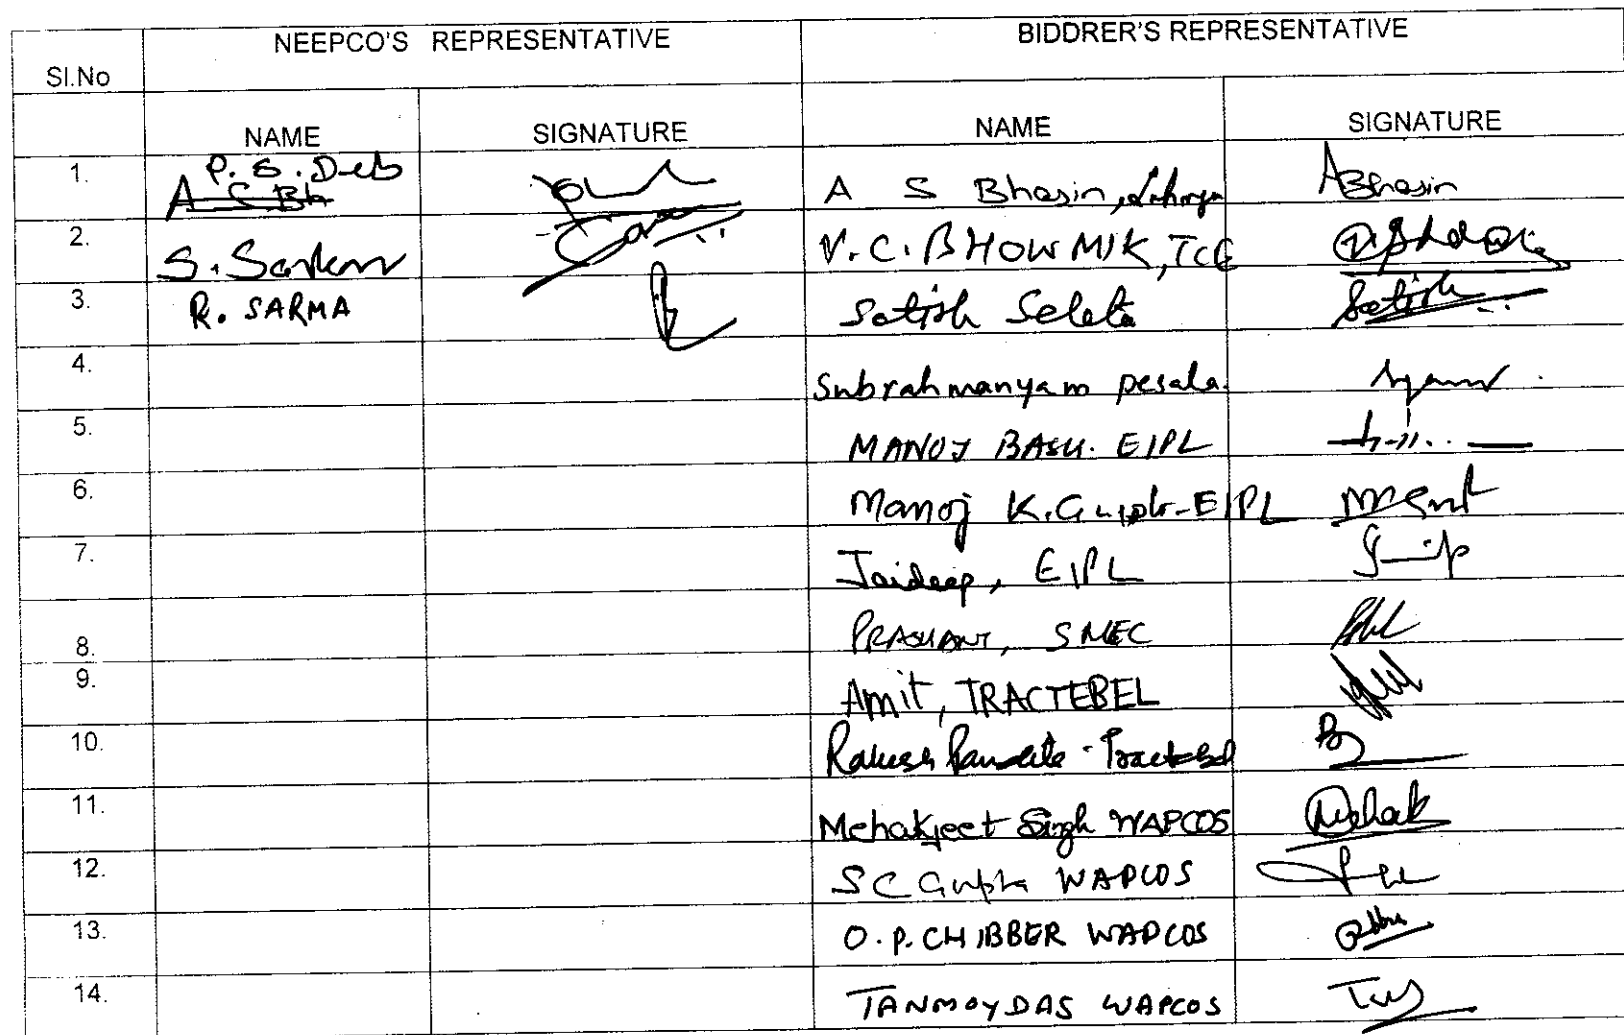 NEEPCO'S REPRESENTATIVE BIDDRER'S REPRESENTATIVE
Sl.No
NAME SIGNATURE NAME SIGNATURE
1. P. S. Deb A S Bhasin, ABhasin
2. S. Sarkar V.C. BHOWMIK, TCE
3. R. SARMA Satish Satish
4. Subrahmanyam pesala.
5. MANOJ BASU. EIPL
6. Manoj K. Gupta-EIPL
7. Jaideep, EIPL
8. PRASHANT, SMEC
9. Amit, TRACTEBEL
10. Rakesh Tractebel
11. Mehakjeet Singh WAPCOS Mehak
12. SC Gupta WAPCOS
13. O.P. CHIBBER WAPCOS
14. TANMOY DAS WAPCOS